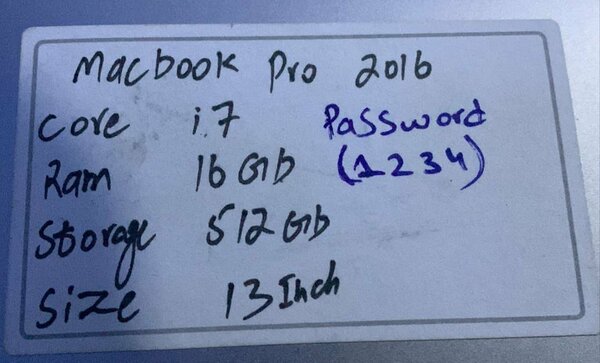 Macbook Pro 2016
Core i7 Password
Ram 16 Gb (1234)
Storage 512 Gb
Size 13 Inch